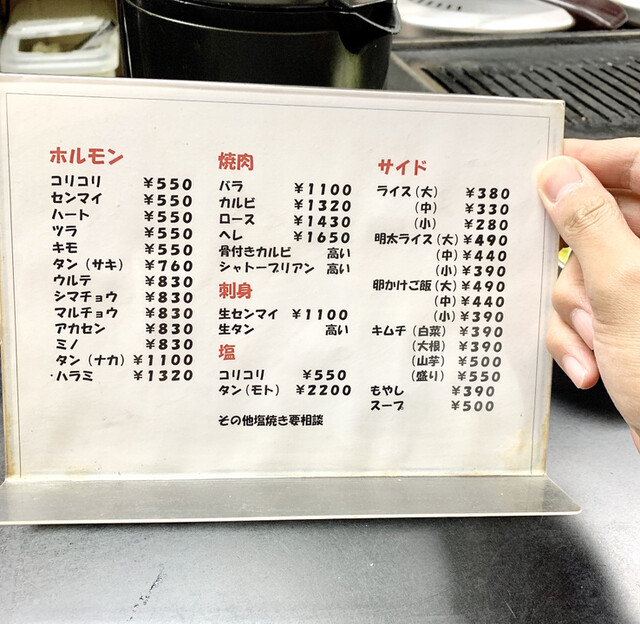 ホルモン
コリコリ ¥550
センマイ ¥550
ハート ¥550
ツラ ¥550
キモ ¥550
タン（サキ） ¥760
ウルテ ¥830
シマチョウ ¥830
マルチョウ ¥830
アカセン ¥830
ミノ ¥830
タン（ナカ） ¥1100
・ハラミ ¥1320
焼肉
バラ ¥1100
カルビ ¥1320
ロース ¥1430
ヘレ ¥1650
骨付きカルビ 高い
シャトーブリアン 高い
刺身
生センマイ ¥1100
生タン 高い
塩
コリコリ ¥550
タン（モト） ¥2200
その他塩焼き要相談
サイド
ライス（大） ¥380
（中） ¥330
（小） ¥280
明太ライス（大） ¥490
（中） ¥440
（小） ¥390
卵かけご飯（大） ¥490
（中） ¥440
（小） ¥390
キムチ（白菜） ¥390
（大根） ¥390
（山芋） ¥500
（盛り） ¥550
もやし ¥390
スープ ¥500